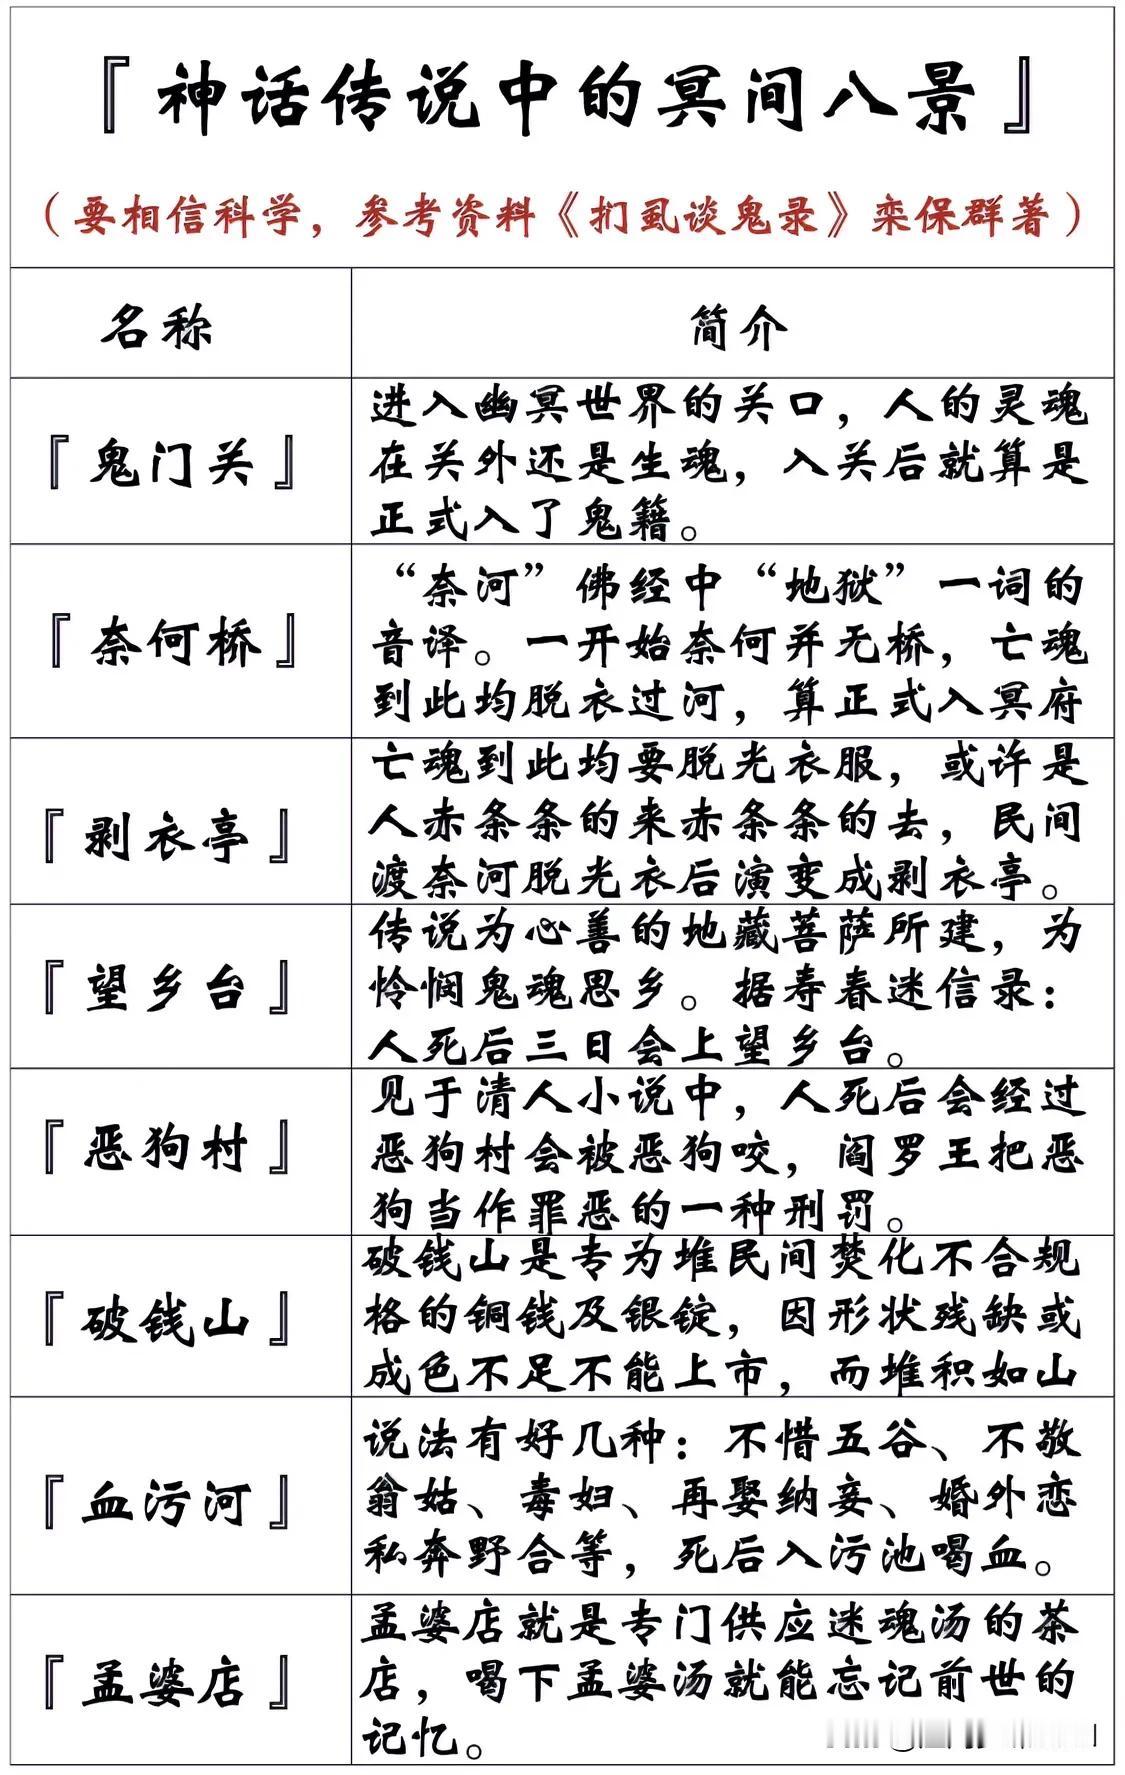 『神话传说中的冥间八景』
（要相信科学，参考资料《扪虱谈鬼录》栾保群著）
名称
简介
『鬼门关』
进入幽冥世界的关口，人的灵魂
在关外还是生魂，入关后就算是
正式入了鬼籍。
『奈何桥』
“奈河”佛经中“地狱”一词的
音译。一开始奈何并无桥，亡魂
到此均脱衣过河，算正式入冥府
『剥衣亭』
亡魂到此均要脱光衣服，或许是
人赤条条的来赤条条的去，民间
渡奈河脱光衣后演变成剥衣亭。
『望乡台』
传说为心善的地藏菩萨所建，为
怜悯鬼魂思乡。据寿春迷信录：
人死后三日会上望乡台。
『恶狗村』
见于清人小说中，人死后会经过
恶狗村会被恶狗咬，阎罗王把恶
狗当作罪恶的一种刑罚。
『破钱山』
破钱山是专为堆民间焚化不合规
格的铜钱及银锭，因形状残缺或
成色不足不能上市，而堆积如山
『血污河』
说法有好几种：不惜五谷、不敬
翁姑、毒妇、再娶纳妾、婚外恋
私奔野合等，死后入污池喝血。
『孟婆店』
孟婆店就是专门供应迷魂汤的茶
店，喝下孟婆汤就能忘记前世的
记忆。